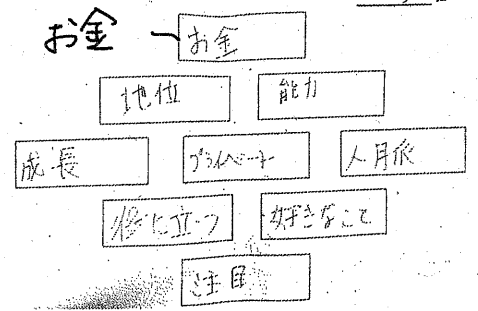 お金 お金
地位 能力
成長 プライベート 人脈
役に立つ 好きなこと
注目